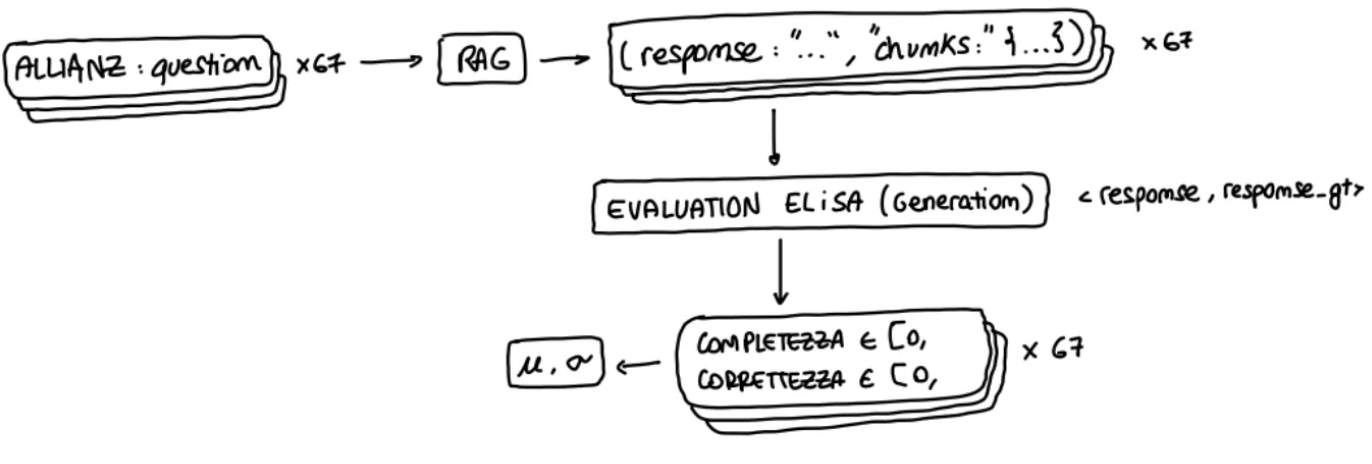 ALLIANZ : question ×67
RAG
(response : "...", "chunks:" {...}) ×67
EVALUATION ELiSA (Generation) < response, response_gt>
COMPLETEZZA ∈ [0,
CORRETTEZZA ∈ [0,
× 67
μ, σ